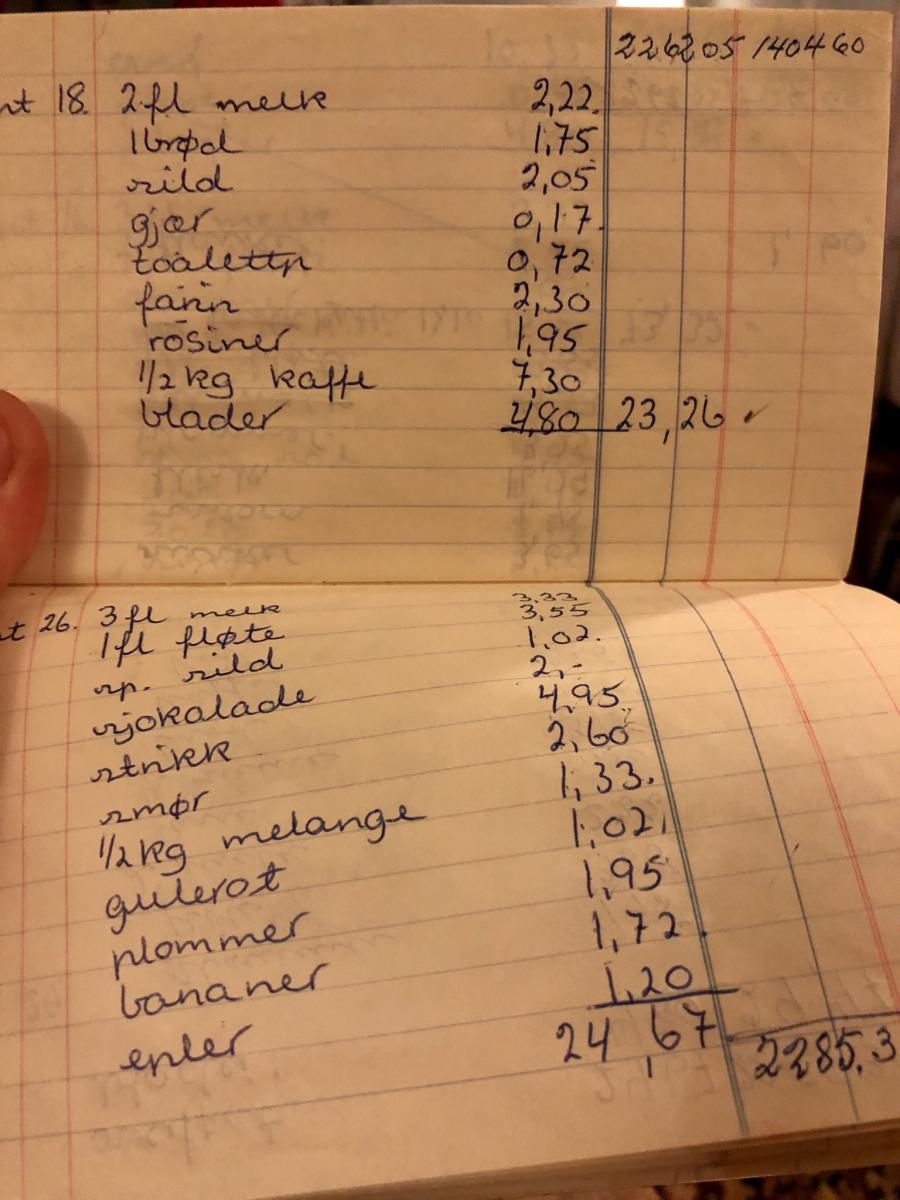 2262 05 1404 60
nt 18. 2 fl melk 2,22.
1 brød 1,75
sild 2,05
gjær 0,17.
toalettp 0,72
farin 2,30
rosiner 1,95
1/2 kg kaffe 7,30
blader 4,80 23,26 ✓
nt 26. 3 fl melk 3,33
1 fl fløte 3,55
sp. sild 1,02.
sjokalade 2,-
strikk 4,95
smør 2,60
1/2 kg melange 1,33.
gulerot 1,02,
plommer 1,95
bananer 1,72.
epler 1,20
24,67 2285.3